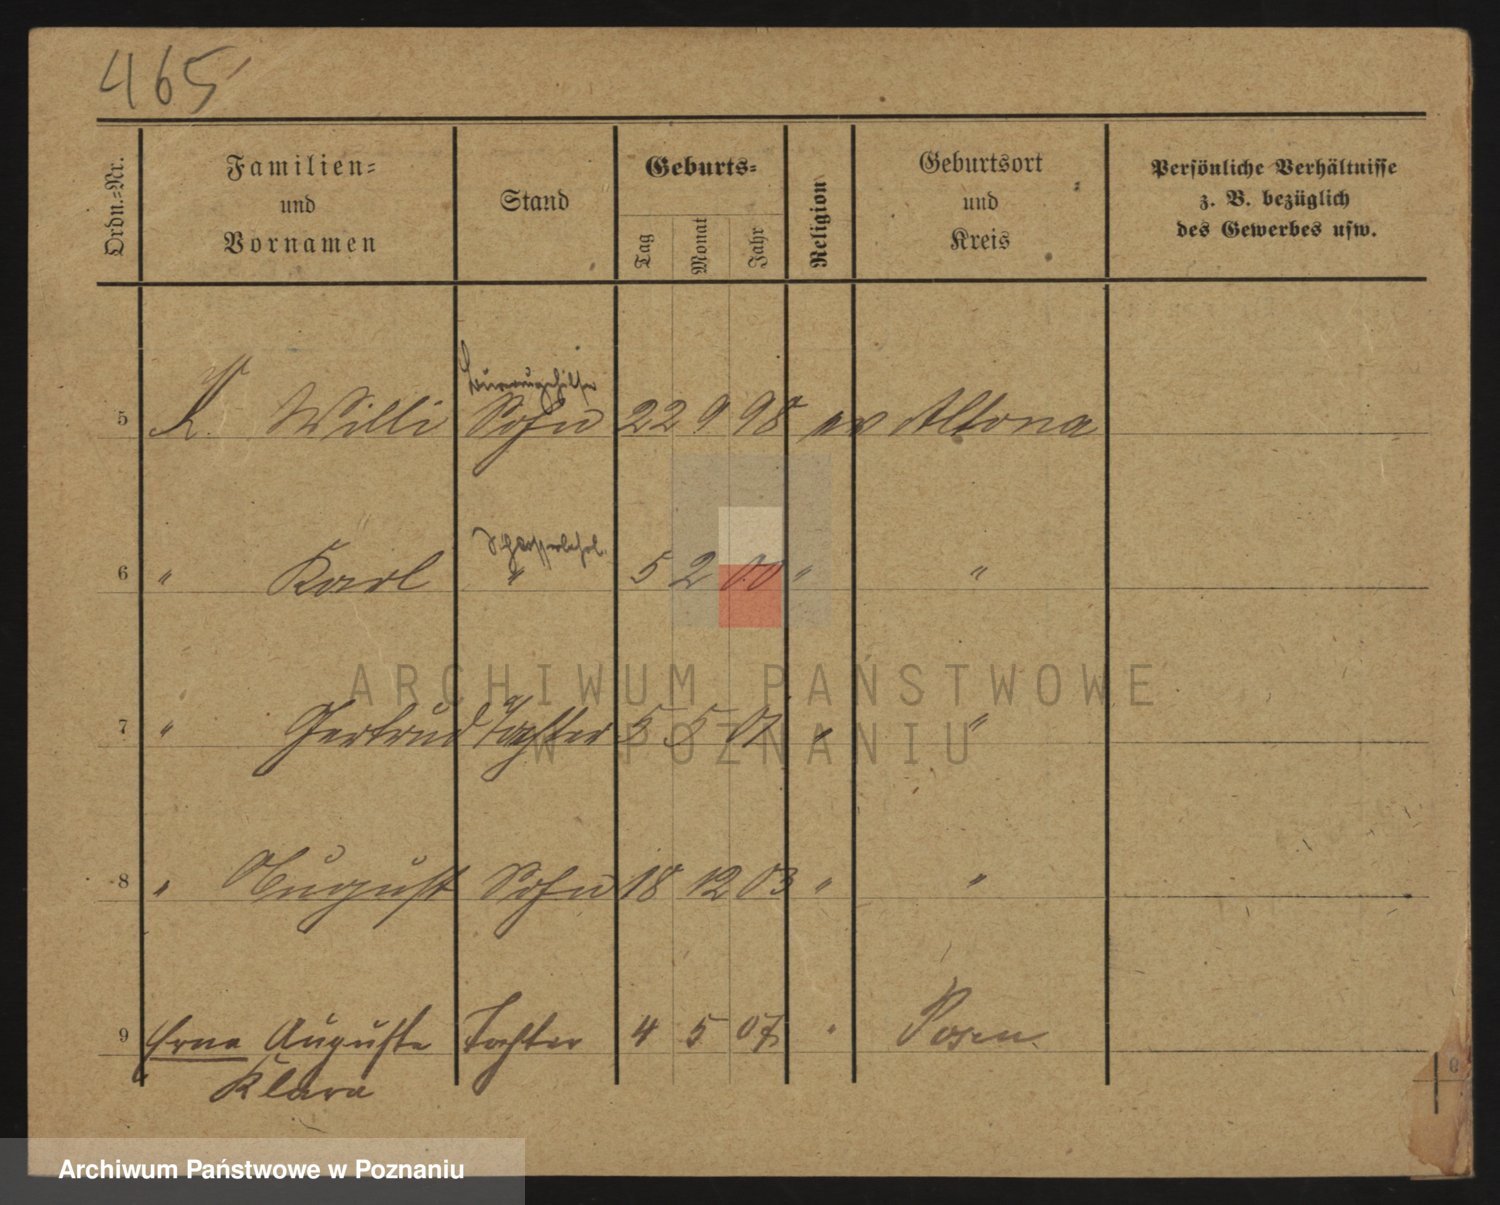 465
Ordn.-Nr.
Familien-
und
Vornamen
Stand
Geburts-
Tag
Monat
Jahr
Religion
Geburtsort
und
Kreis
Persönliche Verhältnisse
z. B. bezüglich
des Gewerbes usw.
Bureaugehilfe
5 K. Willi Sohn 22 9 98 ev Altona
Schlosserlehrl.
6 " Karl " 5 2 00 " "
7 " Gertrud Tochter 5 5 01 " "
8 " August Sohn 18 12 03 " "
9 Erna Auguste Tochter 4 5 07 " Posen
Klara
0
ARCHIWUM PAŃSTWOWE
W POZNANIU
Archiwum Państwowe w Poznaniu